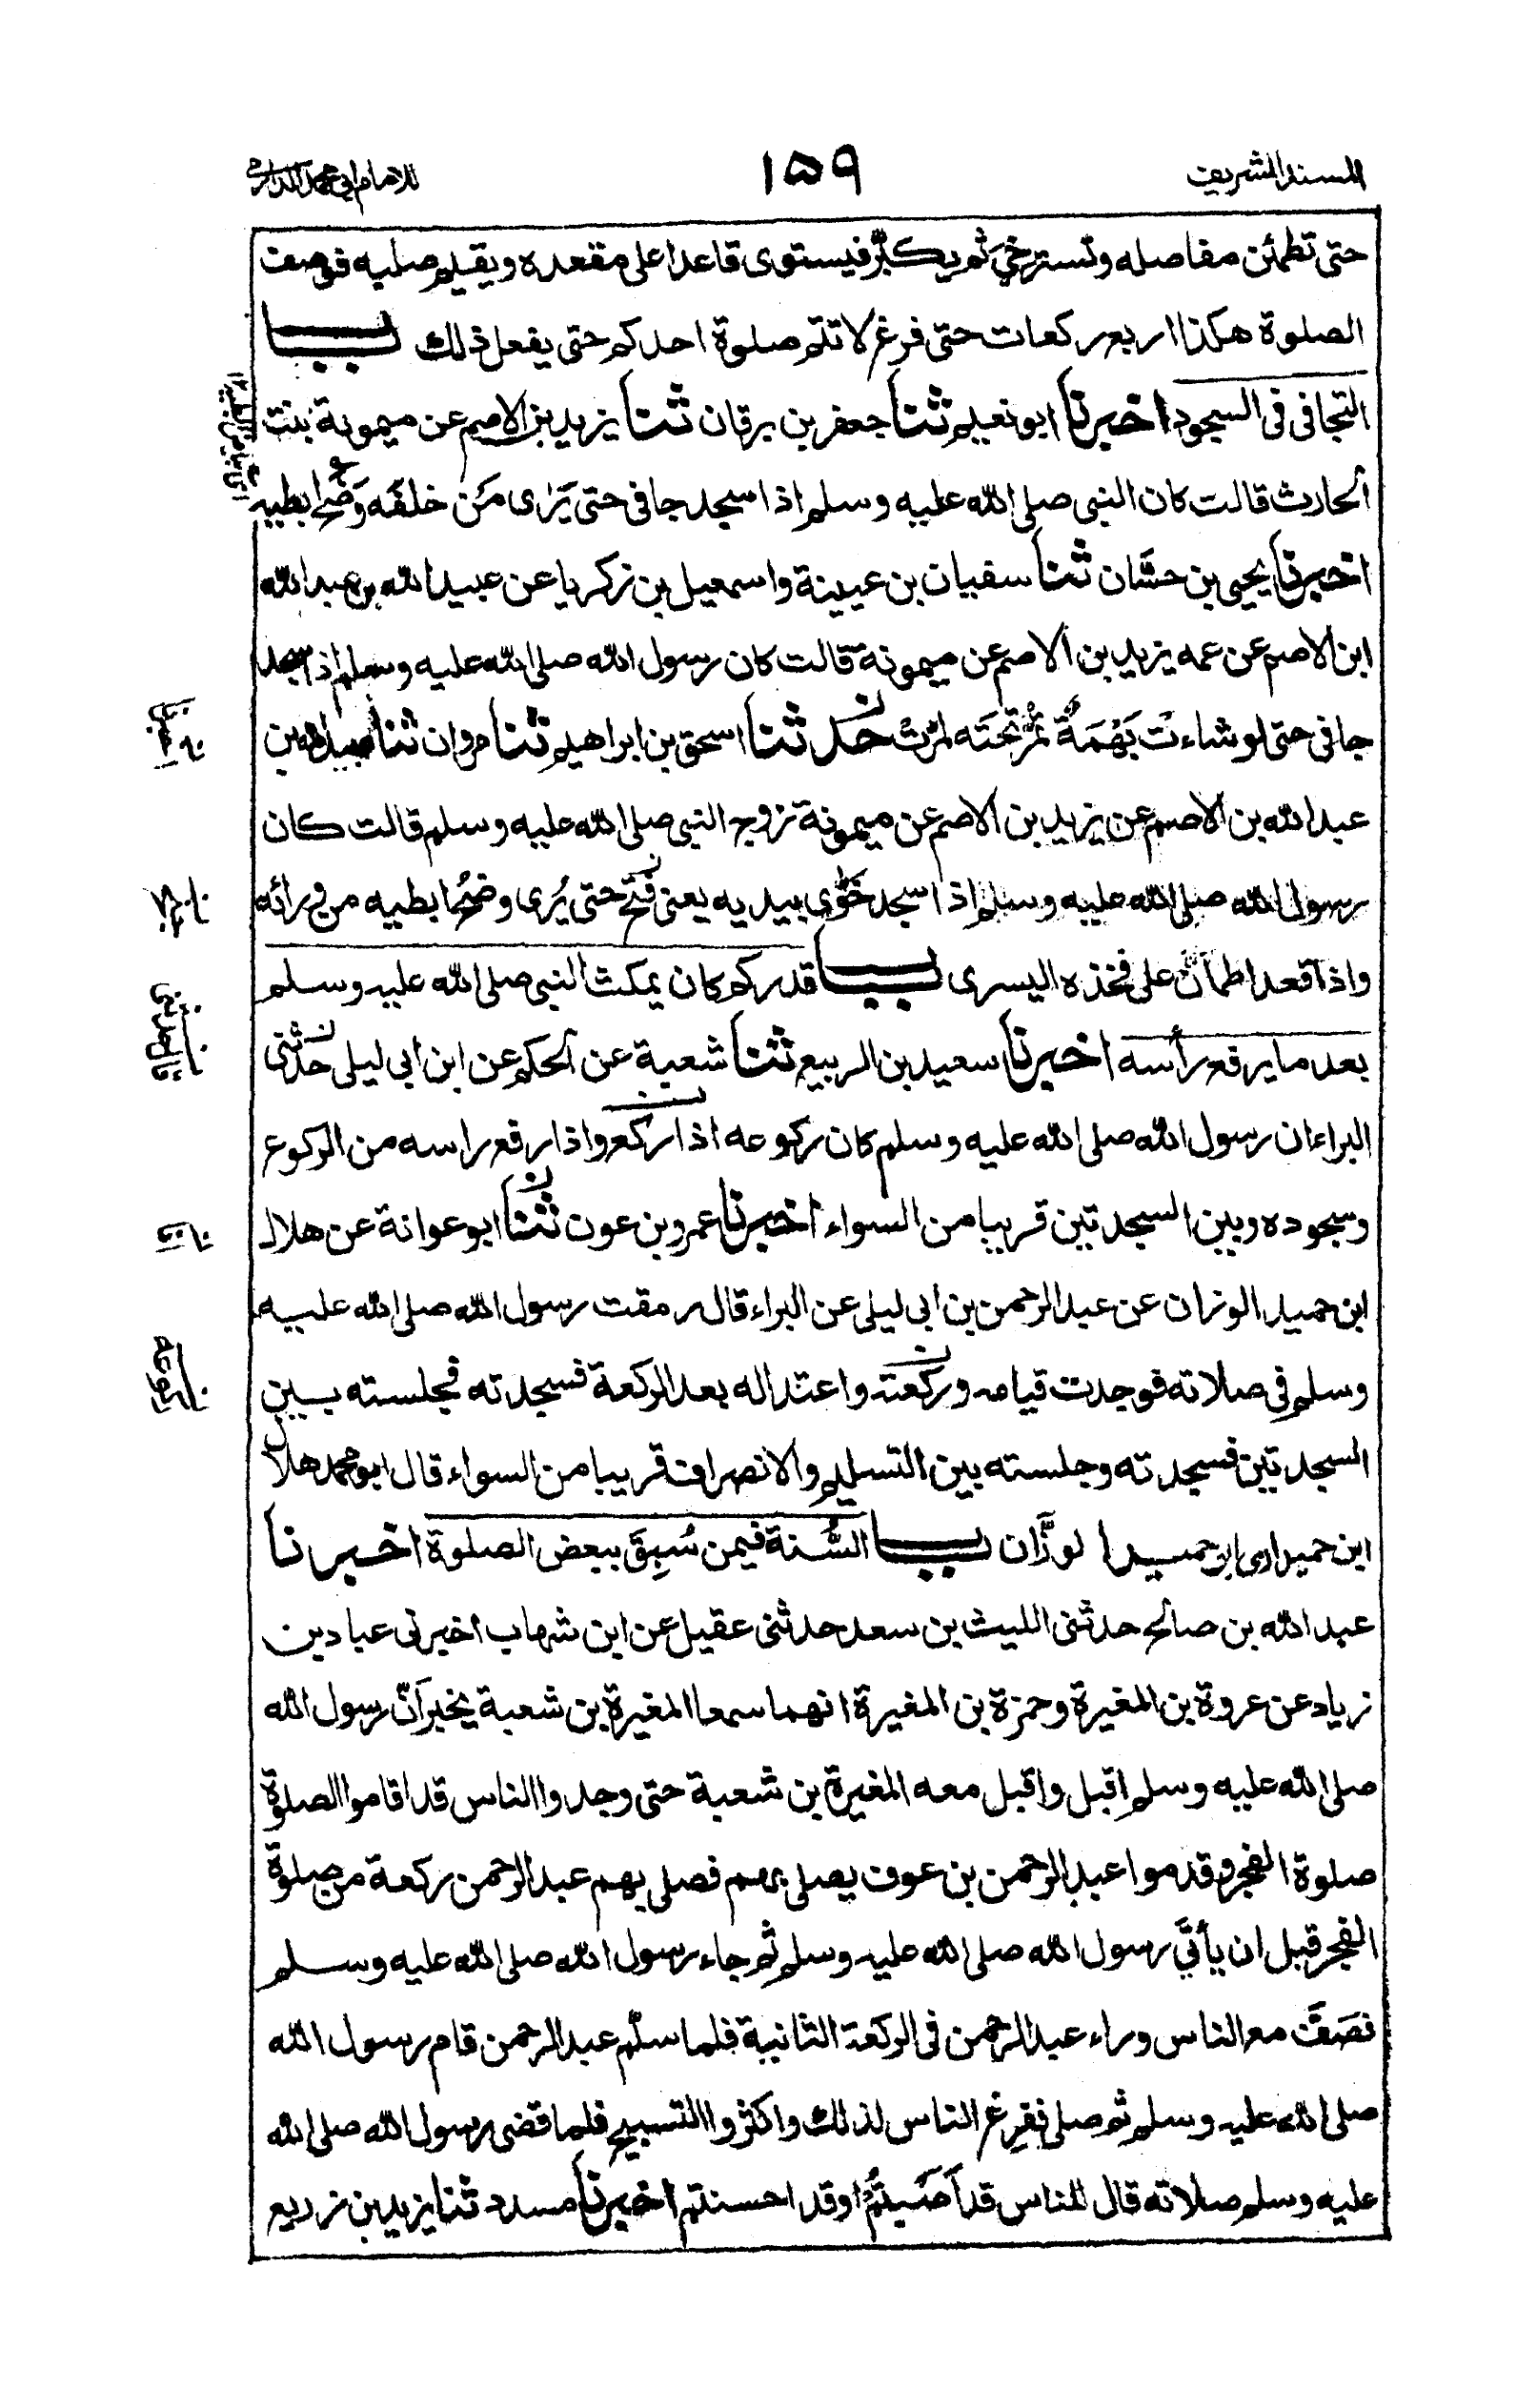 المسند الشريف
١٥٩
للامام ابي محمد الدارمي
حتى تطمئن مفاصله وتسترخي ثم يكبّر فيستوى قاعدا على مقعده ويقيم صلبه فوصف
الصلوة هكذا اربع ركعات حتى فرغ لا تتم صلوة احدكم حتى يفعل ذلك باب
التجافى فى السجود اخبرنا ابو نعيم ثنا جعفر بن برقان ثنا يزيد بن الاصم عن ميمونة بنت
الحارث قالت كان النبى صلى الله عليه وسلم اذا سجد جافى حتى يَرٰى مَن خلفَه وَضَحَ ابطيه
اخبرنا يحيى بن حسّان ثنا سفيان بن عيينة واسمعيل بن زكريا عن عبيد الله بن عبد الله
ابن الاصم عن عمه يزيد بن الاصم عن ميمونة قالت كان رسول الله صلى الله عليه وسلم اذا سجد
جافى حتى لو شاءت بَهْمَةٌ تمُرّ تحتَه لمرّتْ حدثنا اسحق بن ابراهيم ثنا مروان ثنا عبيد الله بن
عبد الله بن الاصم عن يزيد بن الاصم عن ميمونة زوج النبى صلى الله عليه وسلم قالت كان
رسول الله صلى الله عليه وسلم اذا سجد خَوّٰى بيديه يعنى فَتَّح حتى يُرى وضحُ ابطيه من ورائه
واذا قعد اطمأنّ على فخذه اليسرى باب قدر كم كان يمكث النبى صلى الله عليه وسلم
بعد ما يرفع رأسه اخبرنا سعيد بن الربيع ثنا شعبة عن الحكم عن ابن ابى ليلى حدثنى
البراء ان رسول الله صلى الله عليه وسلم كان ركوعه اذا ركع واذا رفع راسه من الركوع
وسجوده وبين السجدتين قريبا من السواء اخبرنا عمرو بن عون ثنا ابو عوانة عن هلال
ابن حميد الوزان عن عبد الرحمن بن ابى ليلى عن البراء قال رمقت رسول الله صلى الله عليه
وسلم فى صلاته فوجدت قيامه وركعته واعتداله بعد الركعة فسجدته فجلسته بين
السجدتين فسجدته وجلسته بين التسليم والانصراف قريبا من السواء قال ابو محمد هلال
ابن حميد ارى ابو حميد الوزَّان باب السُّنة فيمن سُبِقَ ببعض الصلوة اخبرنا
عبد الله بن صالح حدثنى الليث بن سعد حدثنى عقيل عن ابن شهاب اخبرنى عباد بن
زياد عن عروة بن المغيرة وحمزة بن المغيرة انهما سمعا المغيرة بن شعبة يخبر اَنّ رسول الله
صلى الله عليه وسلم اقبل واقبل معه المغيرة بن شعبة حتى وجدوا الناس قد اقاموا الصلوة
صلوة الفجر وقدموا عبد الرحمن بن عوف يصلى بهم فصلى بهم عبد الرحمن ركعة من صلوة
الفجر قبل ان يأتي رسول الله صلى الله عليه وسلم ثم جاء رسول الله صلى الله عليه وسلم
فصَفَّ مع الناس وراء عبد الرحمن فى الركعة الثانية فلما سلّم عبد الرحمن قام رسول الله
صلى الله عليه وسلم ثم صلى ففزِع الناس لذلك واكثروا التسبيح فلما قضى رسول الله صلى الله
عليه وسلم صلاته قال للناس قد اَصَبْتُمْ او قد احسنتم اخبرنا مسدد ثنا يزيد بن زريع